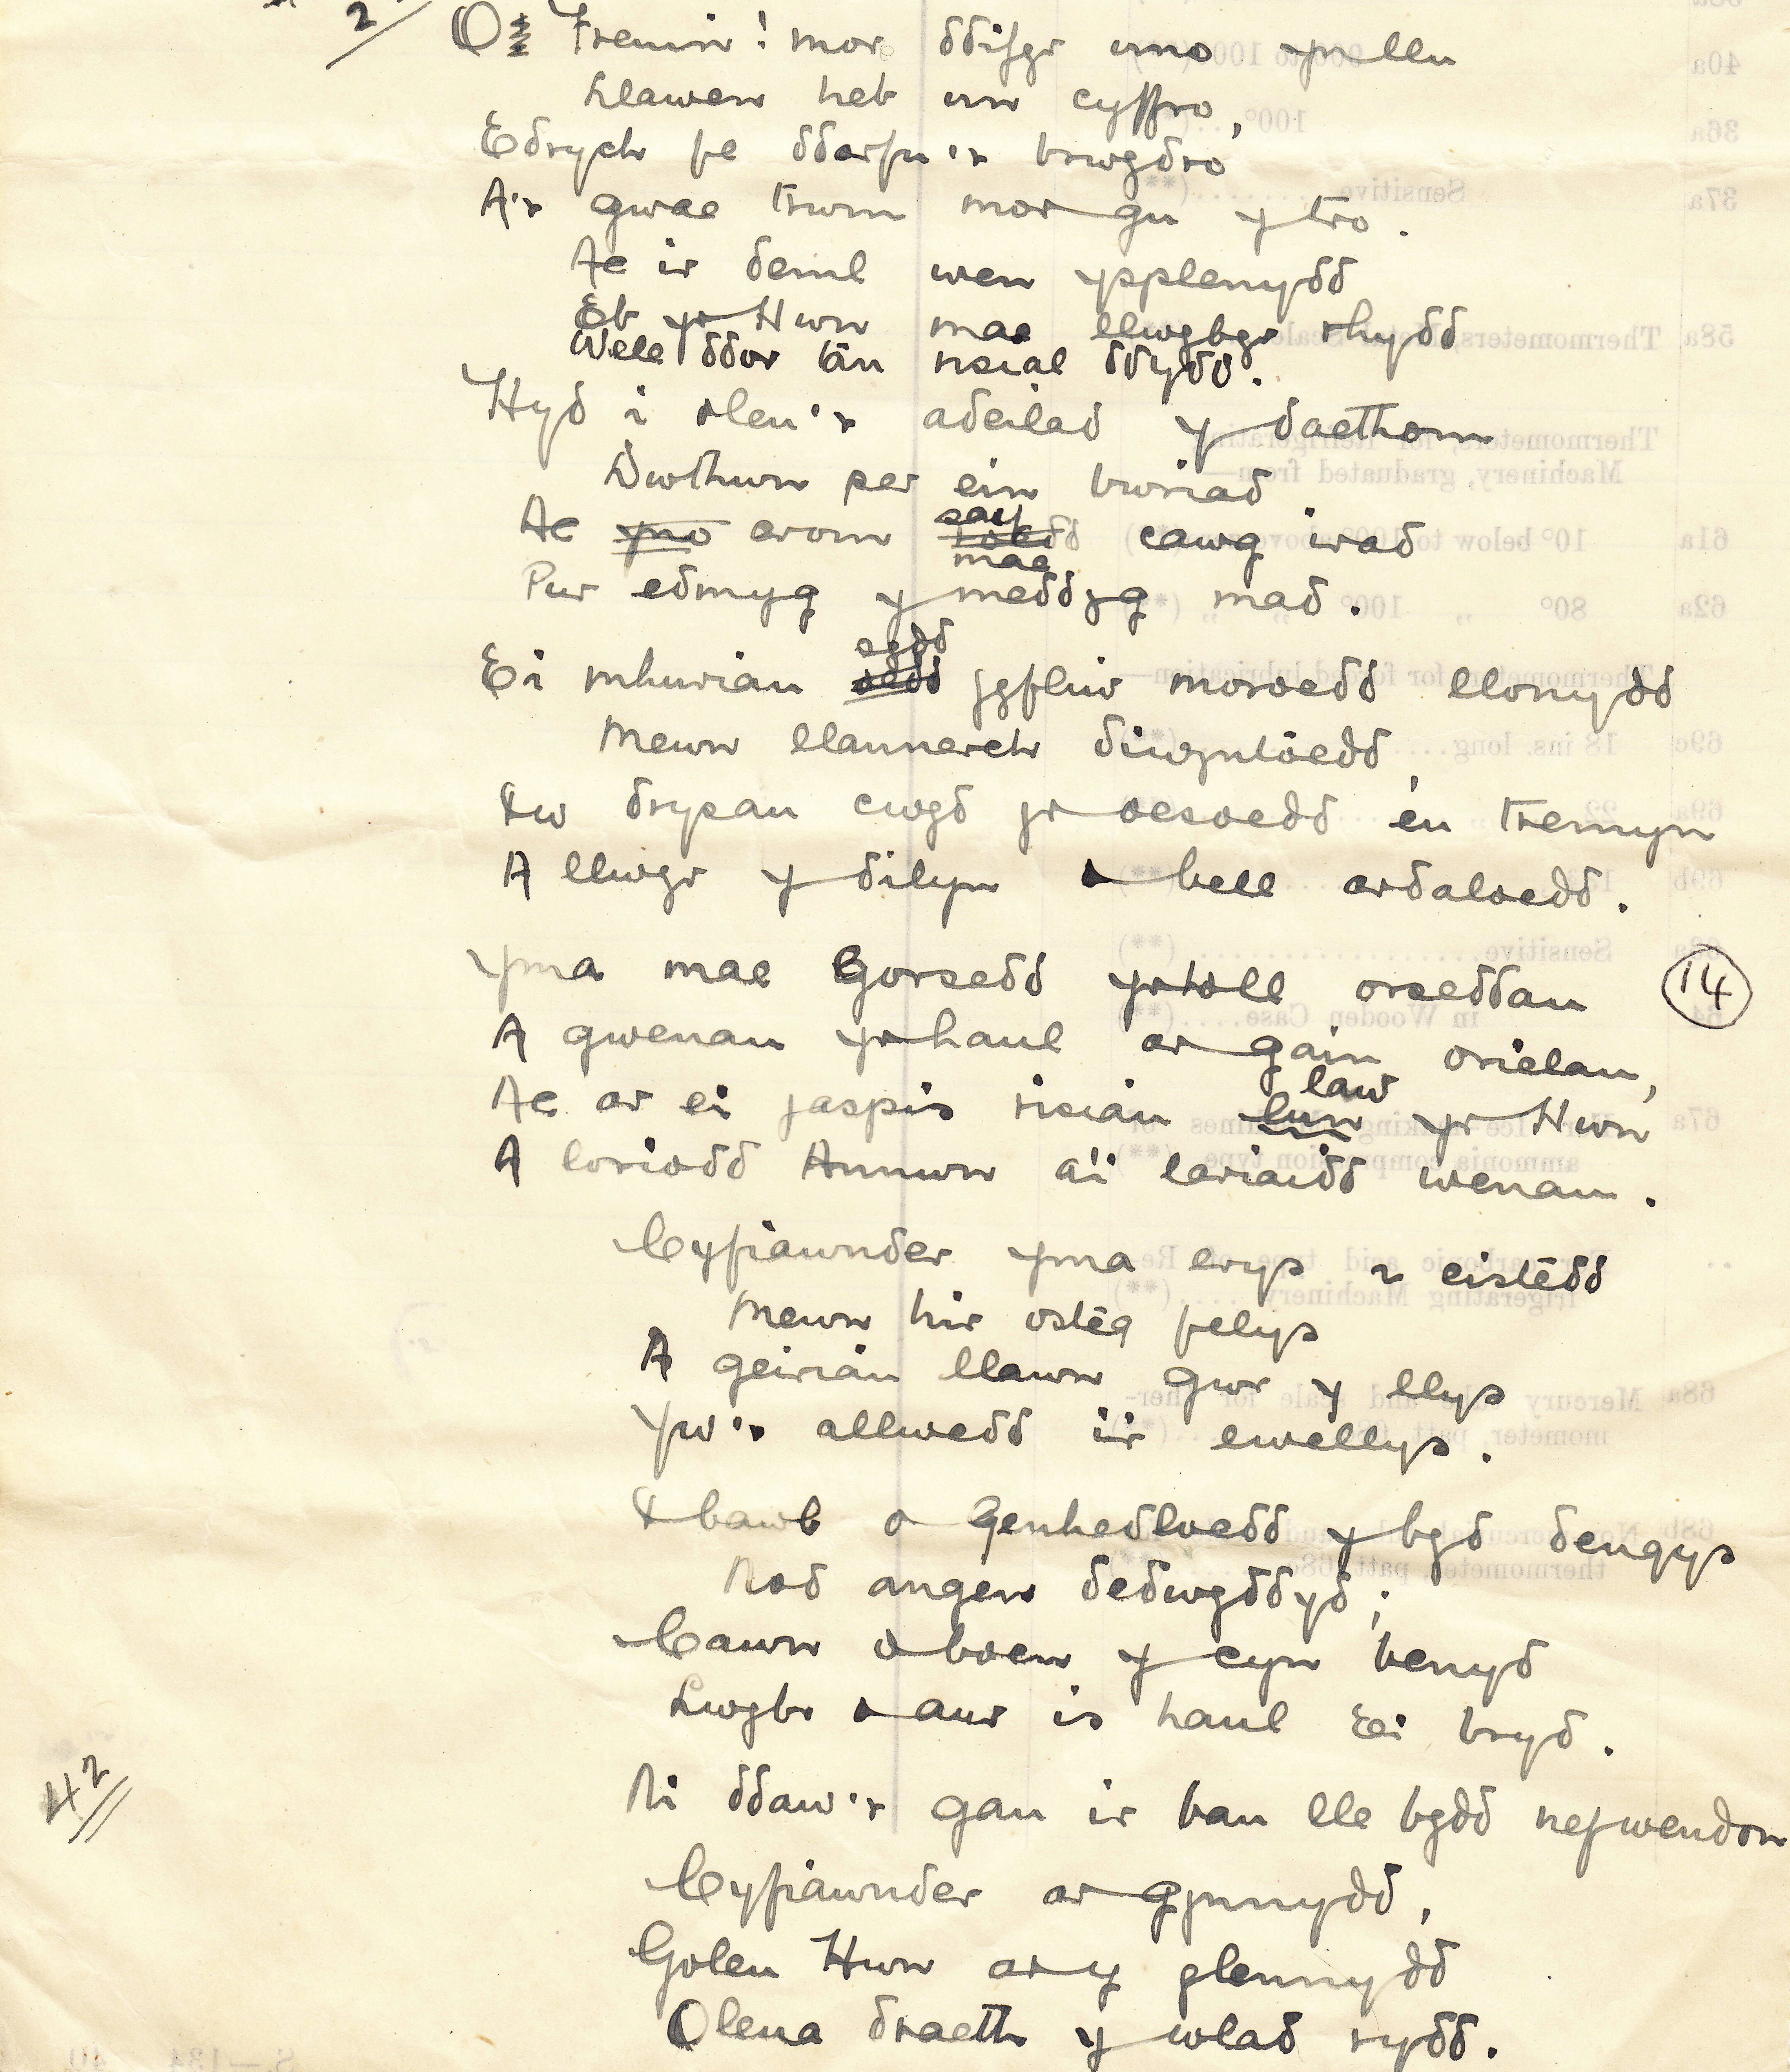 2/
O Tremiw! mor ddifyr uno ynllu
Llawen heb un cyffro,
Edrych fe ddarfu'r brwydro
A'r gwae trwm mor gu y tro.
Ac ir deml wen ysplenydd
Eb yr Hwn mae llwybyr rhydd
Wele ddor lân risial ddydd.
Hyd i oleu'r adeilad y daethom
Nwthwn per ein bwriad
Ac yno erom saif mae cawg irad
Pur edmyg y meddyg mad.
Ei mhuriau sydd yfliw moroedd llonydd
Mewn llannerch diwyntoedd,
Iw drysau cwyd yr oesoedd eu tremyn
A llwyr y dilyn o bell ardaloedd.
Yma mae Gorsedd yr holl orseddau
(14)
A gwenau yr haul ar gain orielau,
Ac ar ei jaspis risiau law llun yr Hwn
A loriodd Annwn a'i lariaidd wenau.
Cyfiawnder yma erys n eistedd
Mewn hir osteg felys
A geiriau llawn gwr y llys
Yw'r allwedd i'ir ewellys.
I bawb o genhedloedd y byd dengys
Nod angen dedwyddyd;
Cawn o boen y cyn benyd
Lwybr o aur is haul Ei bryd.
Ni ddaw'r gau ir bau lle bydd nefwendon
42
Cyfiawnder ar gynnydd,
Goleu Hwn ar y glennydd
Olena draeth y wlad rydd.